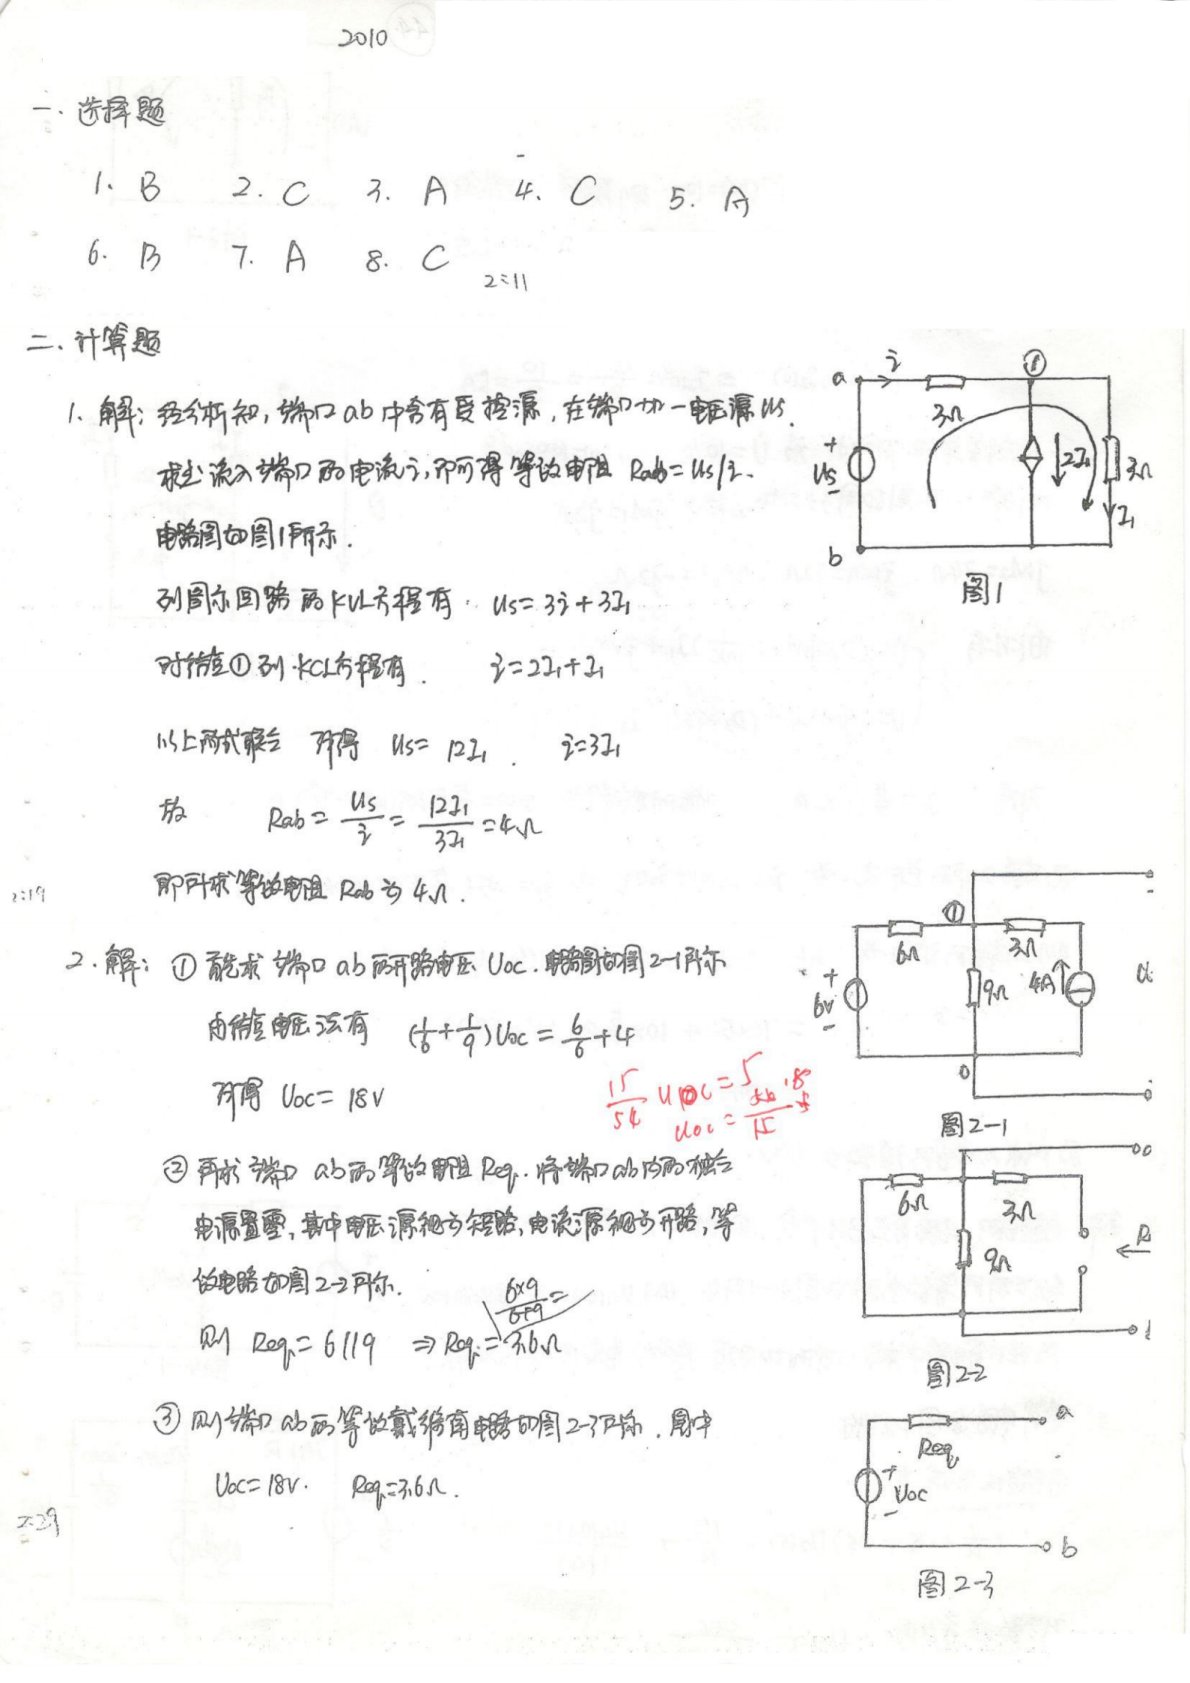 2010
一. 选择题
1. B 2. C 3. A 4. C 5. A
6. B 7. A 8. C
2:11
二. 计算题
1. 解: 经分析知, 端口 ab 中含有受控源, 在端口加一电压源 Us.
求出流入端口的电流 i, 即可得等效电阻 Rab = Us/i.
电路图如图1所示.
列图示回路的KVL方程有 Us = 3i + 3I₁
对结点①列KCL方程有. i = 2I₁ + I₁
以上两式联合 可得 Us = 12I₁. i = 3I₁
故 Rab = Us/i = 12I₁/3I₁ = 4Ω
即所求等效电阻 Rab 为 4Ω.
2:19
a i 3Ω ① + Us - 2I₁ 3Ω I₁ b
图1
2. 解: ① 首先求端口 ab 的开路电压 Uoc. 电路图如图2-1所示
由结点电压法有 (1/6 + 1/9)Uoc = 6/6 + 4
可得 Uoc = 18V
15/54 Uoc = 5
6Ω ① 3Ω + 6V - 9Ω 4A 0
图2-1
② 再求端口 ab 的等效电阻 Req. 将端口 ab 内的独立
电源置零, 其中电压源视为短路, 电流源视为开路, 等
效电路如图2-2所示.
6×9/6+9 =
则 Req = 6//9 ⇒ Req = 3.6Ω
6Ω 3Ω 9Ω R
图2-2
③ 则端口 ab 的等效戴维南电路如图2-3所示. 图中
Uoc = 18V. Req = 3.6Ω.
2:29
Req a + Uoc - b
图2-3